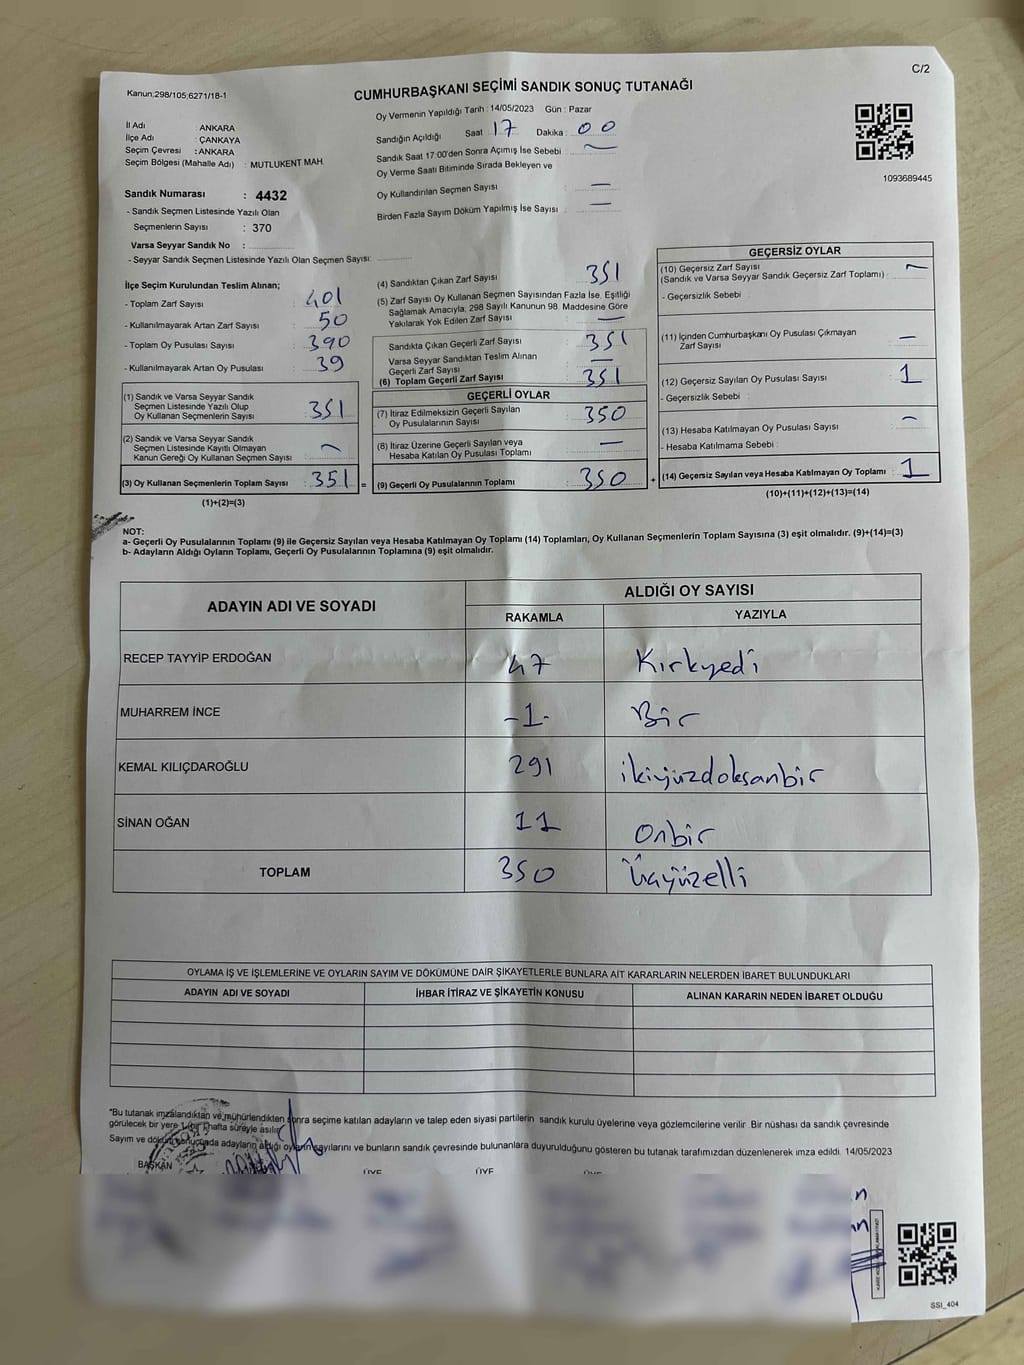 C/2
Kanun;298/105;6271/18-1
CUMHURBAŞKANI SEÇİMİ SANDIK SONUÇ TUTANAĞI
Oy Vermenin Yapıldığı Tarih : 14/05/2023 Gün : Pazar
İl Adı : ANKARA
İlçe Adı : ÇANKAYA
Seçim Çevresi : ANKARA
Seçim Bölgesi (Mahalle Adı) : MUTLUKENT MAH.
Sandığın Açıldığı Saat : 17 Dakika : 00
Sandık Saat 17:00'den Sonra Açımış İse Sebebi : ~
Oy Verme Saati Bitiminde Sırada Bekleyen ve
Oy Kullandırılan Seçmen Sayısı : —
Birden Fazla Sayım Döküm Yapılmış İse Sayısı : —
1093689445
Sandık Numarası : 4432
- Sandık Seçmen Listesinde Yazılı Olan
Seçmenlerin Sayısı : 370
Varsa Seyyar Sandık No :
- Seyyar Sandık Seçmen Listesinde Yazılı Olan Seçmen Sayısı:
İlçe Seçim Kurulundan Teslim Alınan;
- Toplam Zarf Sayısı : 401
- Kullanılmayarak Artan Zarf Sayısı : 50
- Toplam Oy Pusulası Sayısı : 390
- Kullanılmayarak Artan Oy Pusulası : 39
(1) Sandık ve Varsa Seyyar Sandık
Seçmen Listesinde Yazılı Olup
Oy Kullanan Seçmenlerin Sayısı : 351
(2) Sandık ve Varsa Seyyar Sandık
Seçmen Listesinde Kayıtlı Olmayan
Kanun Gereği Oy Kullanan Seçmen Sayısı : ~
(3) Oy Kullanan Seçmenlerin Toplam Sayısı : 351 =
(1)+(2)=(3)
(4) Sandıktan Çıkan Zarf Sayısı : 351
(5) Zarf Sayısı Oy Kullanan Seçmen Sayısından Fazla İse, Eşitliği
Sağlamak Amacıyla; 298 Sayılı Kanunun 98. Maddesine Göre
Yakılarak Yok Edilen Zarf Sayısı : —
Sandıkta Çıkan Geçerli Zarf Sayısı : 351
Varsa Seyyar Sandıktan Teslim Alınan
Geçerli Zarf Sayısı : —
(6) Toplam Geçerli Zarf Sayısı : 351
GEÇERLİ OYLAR
(7) İtiraz Edilmeksizin Geçerli Sayılan
Oy Pusulalarının Sayısı : 350
(8) İtiraz Üzerine Geçerli Sayılan veya
Hesaba Katılan Oy Pusulası Toplamı : —
(9) Geçerli Oy Pusulalarının Toplamı : 350 +
GEÇERSİZ OYLAR
(10) Geçersiz Zarf Sayısı
(Sandık ve Varsa Seyyar Sandık Geçersiz Zarf Toplamı) : ~
- Geçersizlik Sebebi :
(11) İçinden Cumhurbaşkanı Oy Pusulası Çıkmayan
Zarf Sayısı : —
(12) Geçersiz Sayılan Oy Pusulası Sayısı : 1
- Geçersizlik Sebebi :
(13) Hesaba Katılmayan Oy Pusulası Sayısı : ~
- Hesaba Katılmama Sebebi :
(14) Geçersiz Sayılan veya Hesaba Katılmayan Oy Toplamı : 1
(10)+(11)+(12)+(13)=(14)
NOT:
a- Geçerli Oy Pusulalarının Toplamı (9) ile Geçersiz Sayılan veya Hesaba Katılmayan Oy Toplamı (14) Toplamları, Oy Kullanan Seçmenlerin Toplam Sayısına (3) eşit olmalıdır. (9)+(14)=(3)
b- Adayların Aldığı Oyların Toplamı, Geçerli Oy Pusulalarının Toplamına (9) eşit olmalıdır.
ADAYIN ADI VE SOYADI ALDIĞI OY SAYISI
RAKAMLA YAZIYLA
RECEP TAYYİP ERDOĞAN 47 Kırkyedi
MUHARREM İNCE -1- Bir
KEMAL KILIÇDAROĞLU 291 ikiyüzdoksanbir
SİNAN OĞAN 11 Onbir
TOPLAM 350 Üçyüzelli
OYLAMA İŞ VE İŞLEMLERİNE VE OYLARIN SAYIM VE DÖKÜMÜNE DAİR ŞİKAYETLERLE BUNLARA AİT KARARLARIN NELERDEN İBARET BULUNDUKLARI
ADAYIN ADI VE SOYADI İHBAR İTİRAZ VE ŞİKAYETİN KONUSU ALINAN KARARIN NEDEN İBARET OLDUĞU
"Bu tutanak imzalandıktan ve mühürlendikten sonra seçime katılan adayların ve talep eden siyasi partilerin sandık kurulu üyelerine veya gözlemcilerine verilir. Bir nüshası da sandık çevresinde
görülecek bir yere 1 bir hafta süreyle asılır
Sayım ve döküm sonucunda adayların aldığı oyların sayılarını ve bunların sandık çevresinde bulunanlara duyurulduğunu gösteren bu tutanak tarafımızdan düzenlenerek imza edildi. 14/05/2023
BAŞKAN ÜYE ÜYE
SSI_404